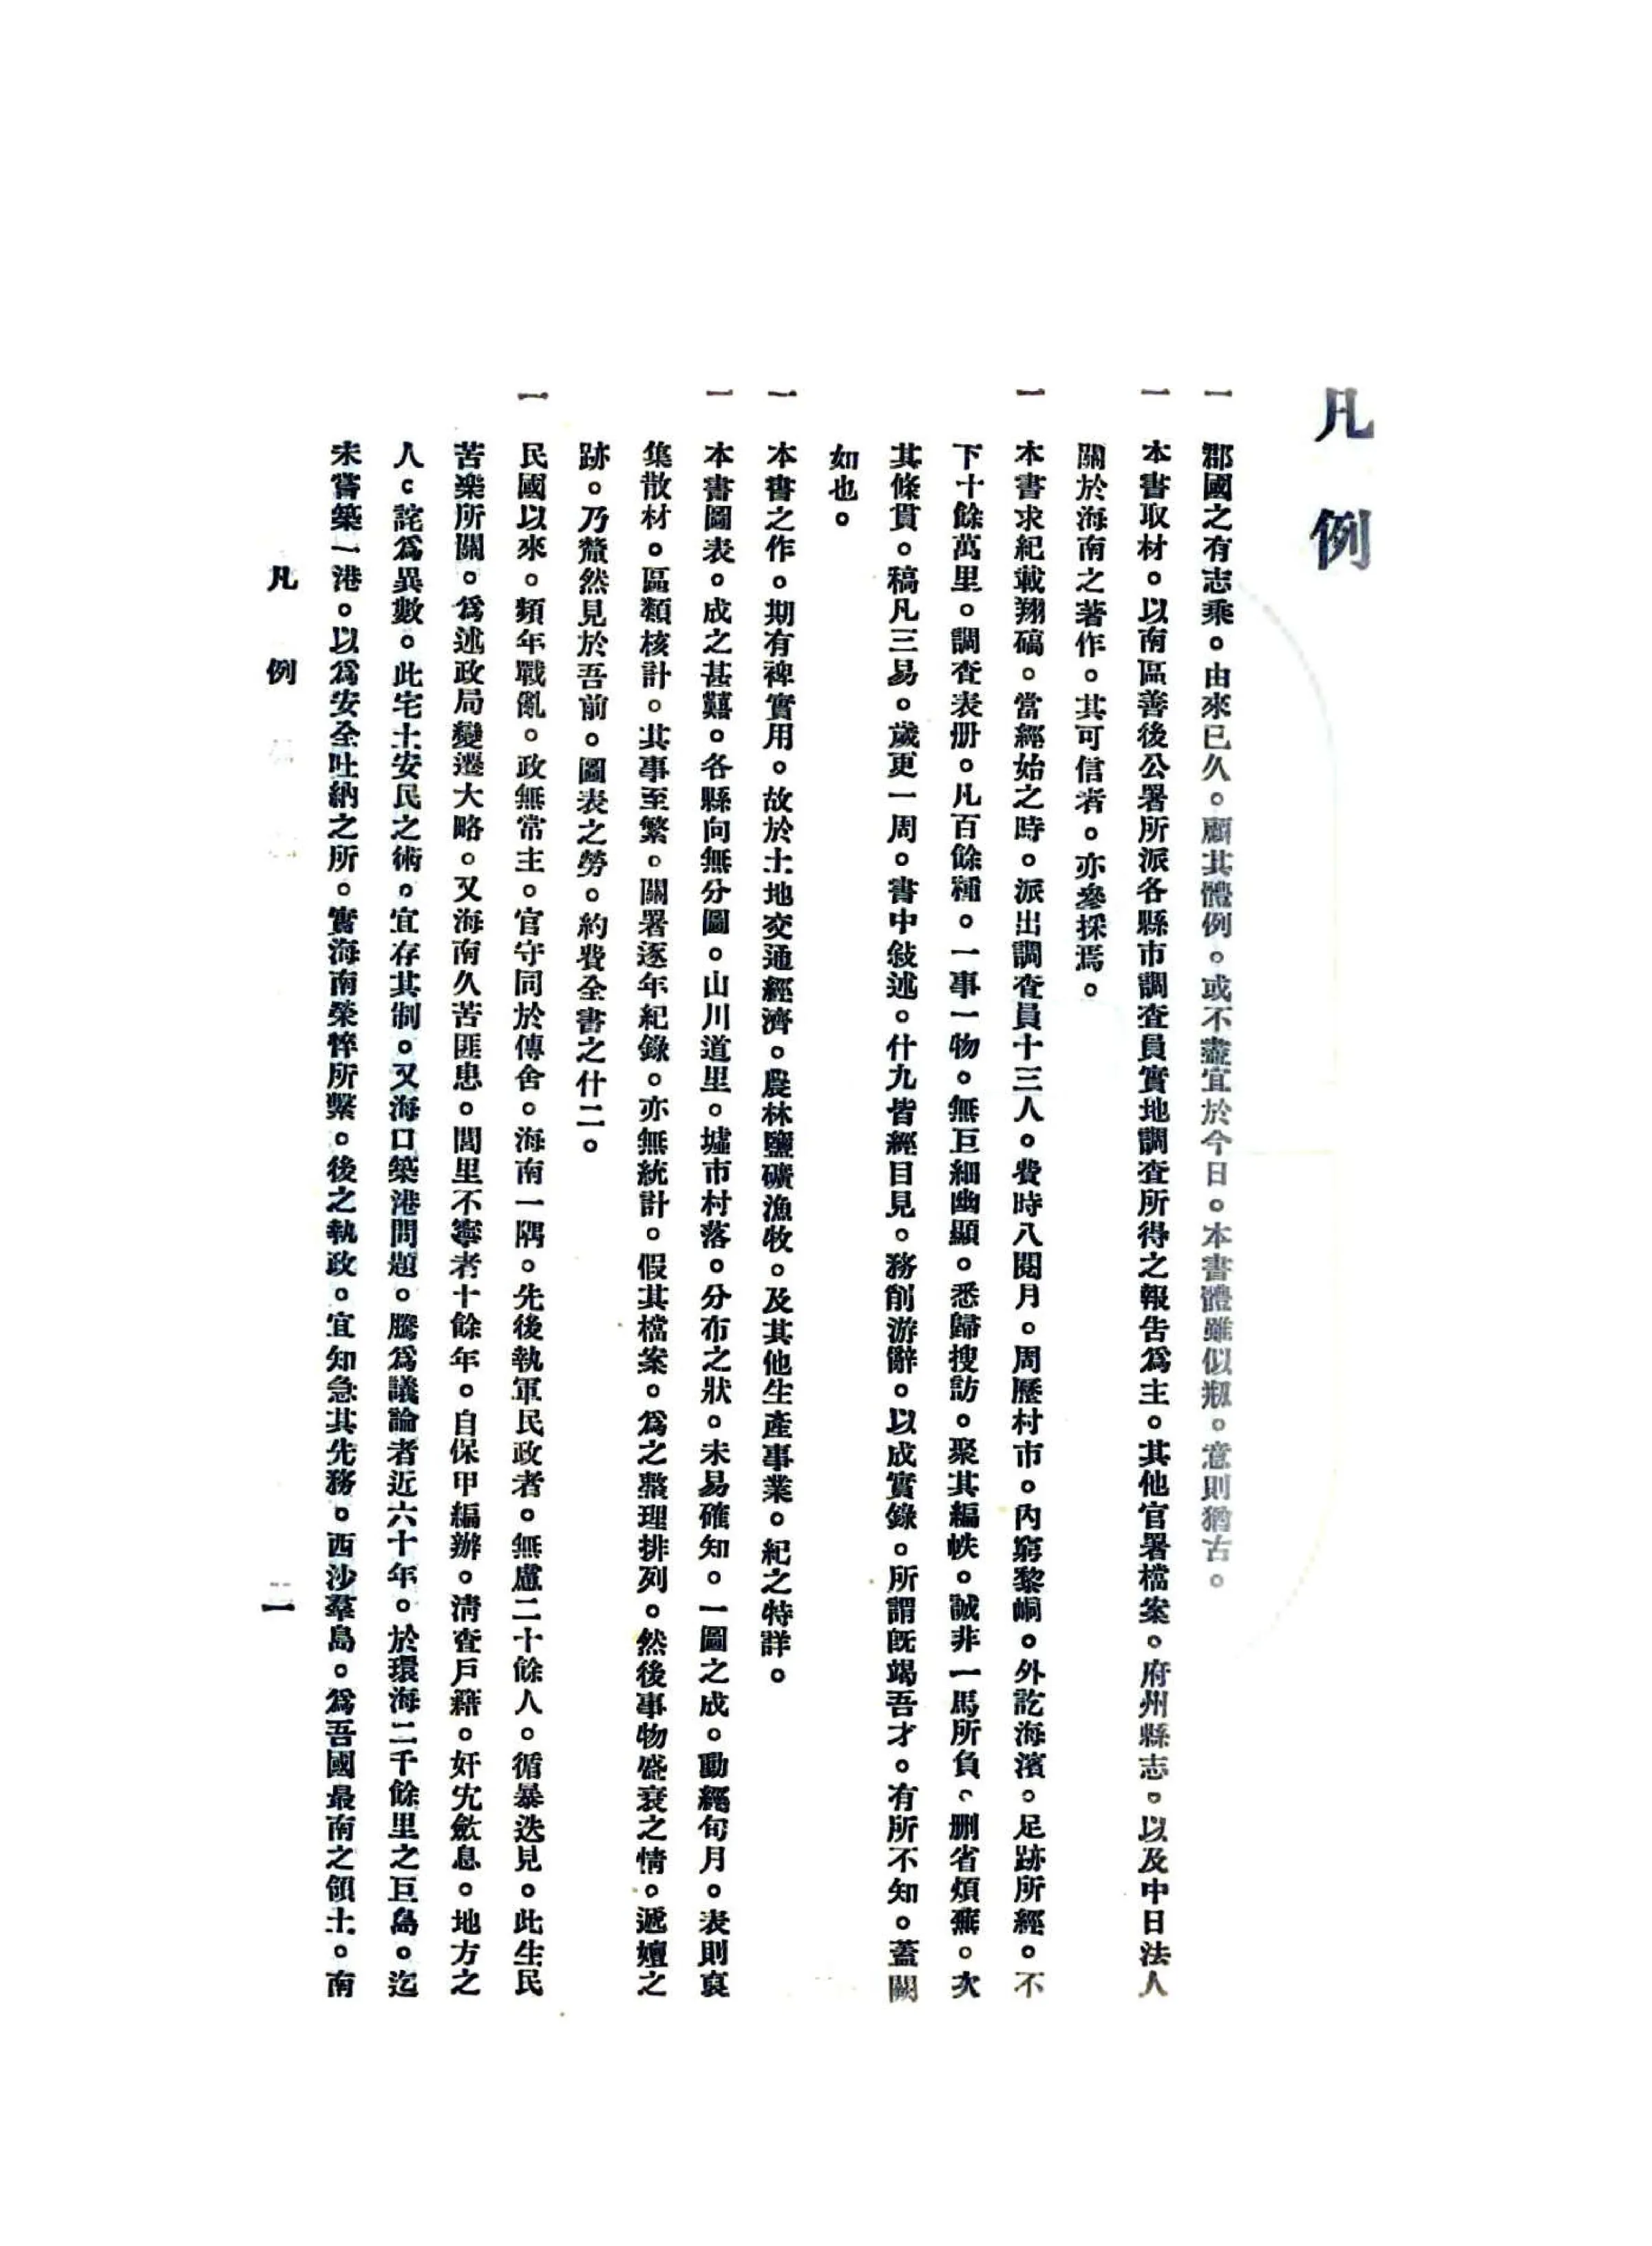 凡例
一 郡國之有志乘。由來已久。顧其體例。或不盡宜於今日。本書體雖似剏。意則猶古。
一 本書取材。以南區善後公署所派各縣市調查員實地調查所得之報告爲主。其他官署檔案。府州縣志。以及中日法人
關於海南之著作。其可信者。亦參採焉。
一 本書求紀載翔碻。當經始之時。派出調查員十三人。費時八閱月。周歷村市。內窮黎峒。外訖海濱。足跡所經。不
下十餘萬里。調查表册。凡百餘種。一事一物。無巨細幽顯。悉歸搜訪。聚其編帙。誠非一馬所負。删省煩蕪。次
其條貫。稿凡三易。歲更一周。書中敍述。什九皆經目見。務削游辭。以成實錄。所謂旣竭吾才。有所不知。蓋闕
如也。
一 本書之作。期有裨實用。故於土地交通經濟。農林鹽礦漁牧。及其他生產事業。紀之特詳。
一 本書圖表。成之甚囏。各縣向無分圖。山川道里。墟市村落。分布之狀。未易確知。一圖之成。動經旬月。表則裒
集散材。區類核計。其事至繁。關署逐年紀錄。亦無統計。假其檔案。爲之整理排列。然後事物盛衰之情。遞嬗之
跡。乃釐然見於吾前。圖表之勞。約費全書之什二。
一 民國以來。頻年戰亂。政無常主。官守同於傳舍。海南一隅。先後執軍民政者。無慮二十餘人。循暴迭見。此生民
苦樂所關。爲述政局變遷大略。又海南久苦匪患。閭里不寧者十餘年。自保甲編辦。清查戶籍。奸宄斂息。地方之
人。詫爲異數。此宅土安民之術。宜存其制。又海口築港問題。騰爲議論者近六十年。於環海二千餘里之巨島。迄
未嘗築一港。以爲安全吐納之所。實海南榮悴所繫。後之執政。宜知急其先務。西沙羣島。爲吾國最南之領土。南
凡例 一